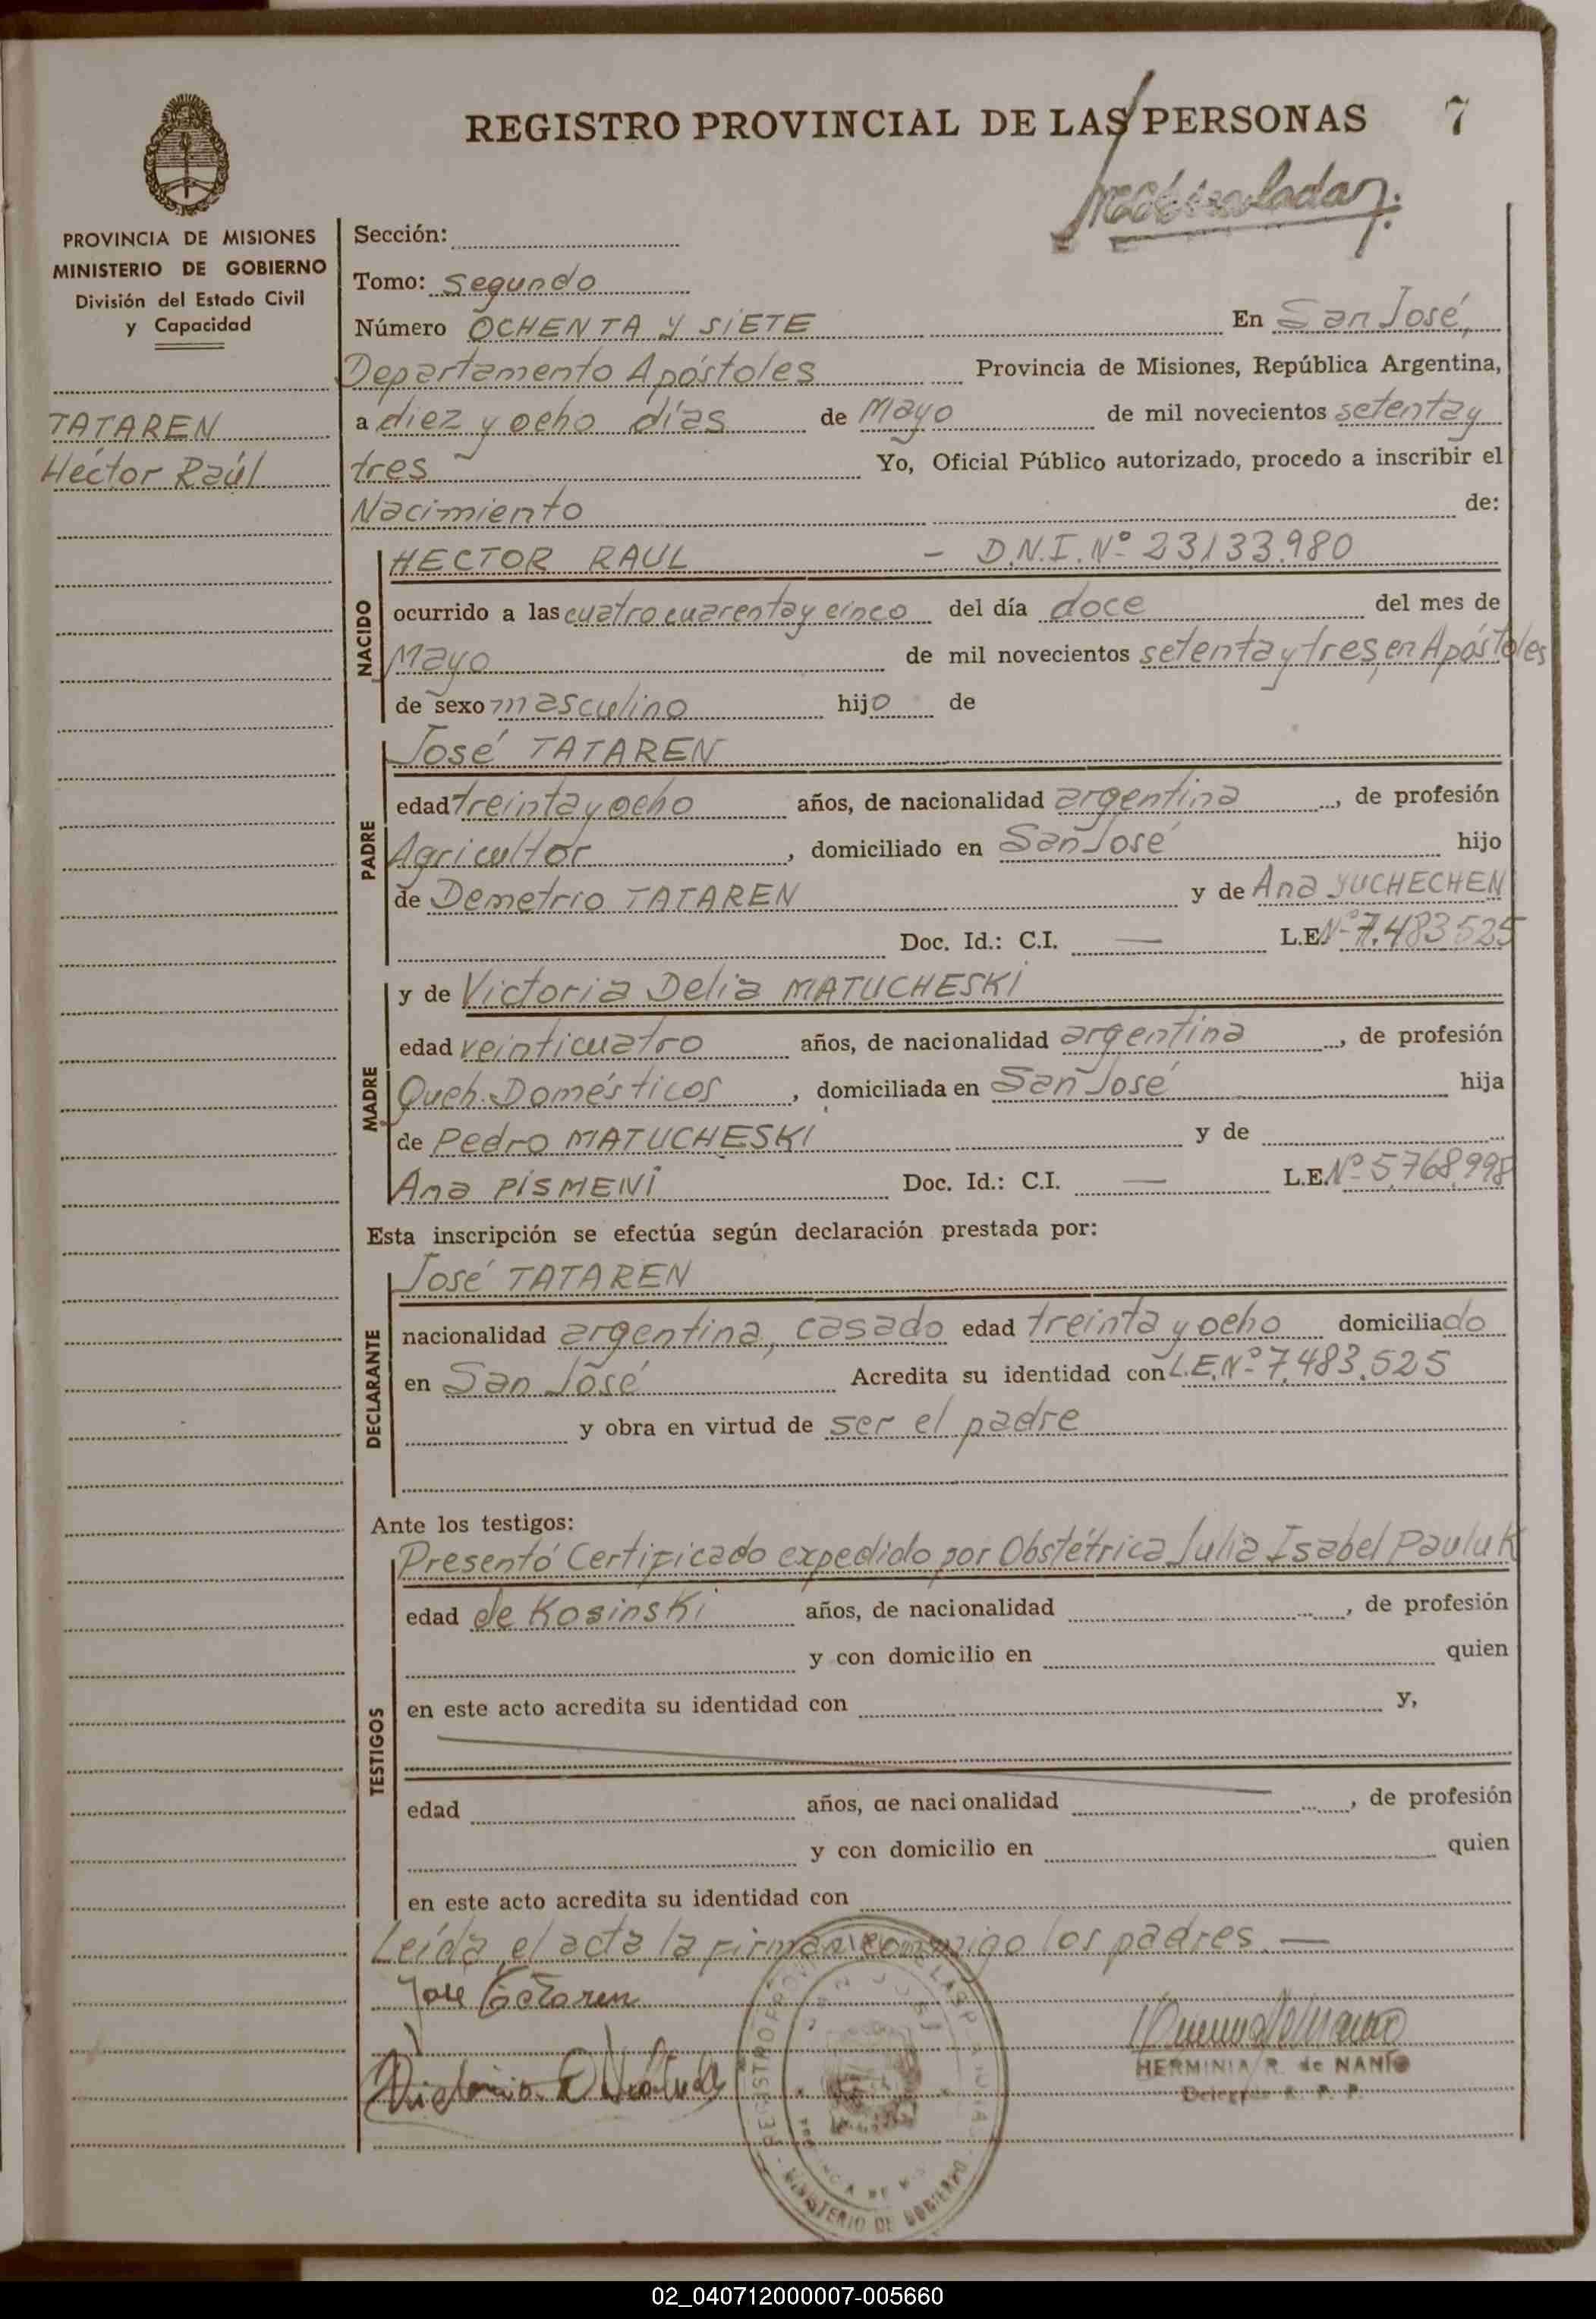 REGISTRO PROVINCIAL DE LAS PERSONAS 7
PROVINCIA DE MISIONES
MINISTERIO DE GOBIERNO
División del Estado Civil
y Capacidad
TATAREN
Héctor Raúl
Sección:
Tomo: Segundo
Número OCHENTA y SIETE En San José,
Departamento Apóstoles Provincia de Misiones, República Argentina,
a diez y ocho días de Mayo de mil novecientos setenta y
tres Yo, Oficial Público autorizado, procedo a inscribir el
Nacimiento de:
NACIDO
HECTOR RAUL - D.N.I. Nº 23.133.980
ocurrido a las cuatro cuarenta y cinco del día doce del mes de
Mayo de mil novecientos setenta y tres, en Apóstoles
de sexo masculino hijo de
PADRE
José TATAREN
edad treinta y ocho años, de nacionalidad argentina, de profesión
Agricultor, domiciliado en San José hijo
de Demetrio TATAREN y de Ana YUCHECHEN
Doc. Id.: C.I. — L.E. Nº 7.483.525
MADRE
y de Victoria Delia MATUCHESKI
edad veinticuatro años, de nacionalidad argentina, de profesión
Queh. Domésticos, domiciliada en San José hija
de Pedro MATUCHESKI y de
Ana PISMENI Doc. Id.: C.I. — L.E. Nº 5.768.998
Esta inscripción se efectúa según declaración prestada por:
DECLARANTE
José TATAREN
nacionalidad argentina, casado edad treinta y ocho domiciliado
en San José Acredita su identidad con L.E. Nº 7.483.525
y obra en virtud de ser el padre
Ante los testigos:
TESTIGOS
Presentó Certificado expedido por Obstétrica Julia Isabel Pauluk
edad de Kosinski años, de nacionalidad , de profesión
y con domicilio en quien
en este acto acredita su identidad con y,
edad años, de nacionalidad , de profesión
y con domicilio en quien
en este acto acredita su identidad con
Leída el acta la firman conmigo los padres. —
José Tataren
HERMINIA R. de NANIO
MINISTERIO DE GOBIERNO
02_040712000007-005660